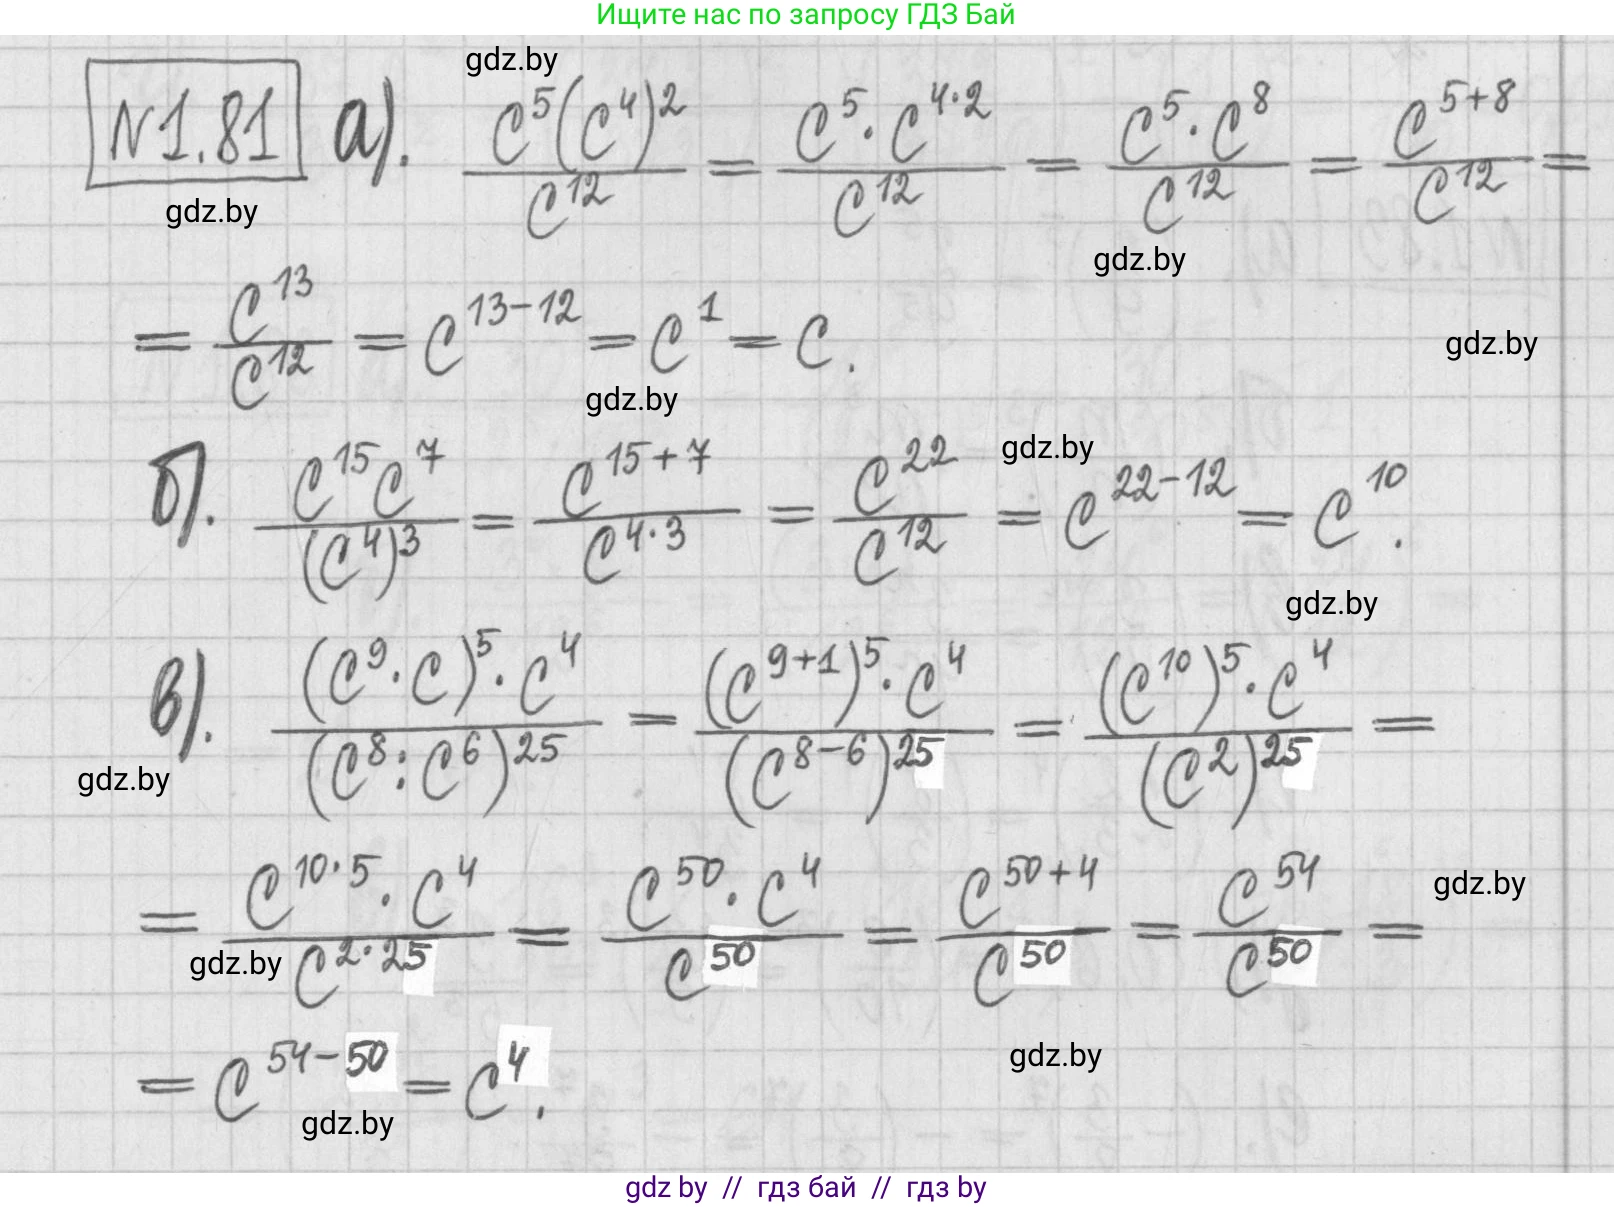 Ищите нас по запросу ГДЗ Бай
gdz.by
N1.81 а). c^5(c^4)^2/c^12 = c^5·c^(4·2)/c^12 = c^5·c^8/c^12 = c^(5+8)/c^12 =
gdz.by
gdz.by
= c^13/c^12 = c^(13-12) = c^1 = c.
gdz.by
gdz.by
gdz.by
б). c^15c^7/(c^4)^3 = c^(15+7)/c^(4·3) = c^22/c^12 = c^(22-12) = c^10.
gdz.by
в). (c^9·c)^5·c^4/(c^8:c^6)^25 = (c^(9+1))^5·c^4/(c^(8-6))^25 = (c^10)^5·c^4/(c^2)^25 =
gdz.by
gdz.by
= c^(10·5)·c^4/c^(2·25) = c^50·c^4/c^50 = c^(50+4)/c^50 = c^54/c^50 =
gdz.by
gdz.by
= c^(54-50) = c^4.
gdz.by
gdz by // гдз бай // гдз by